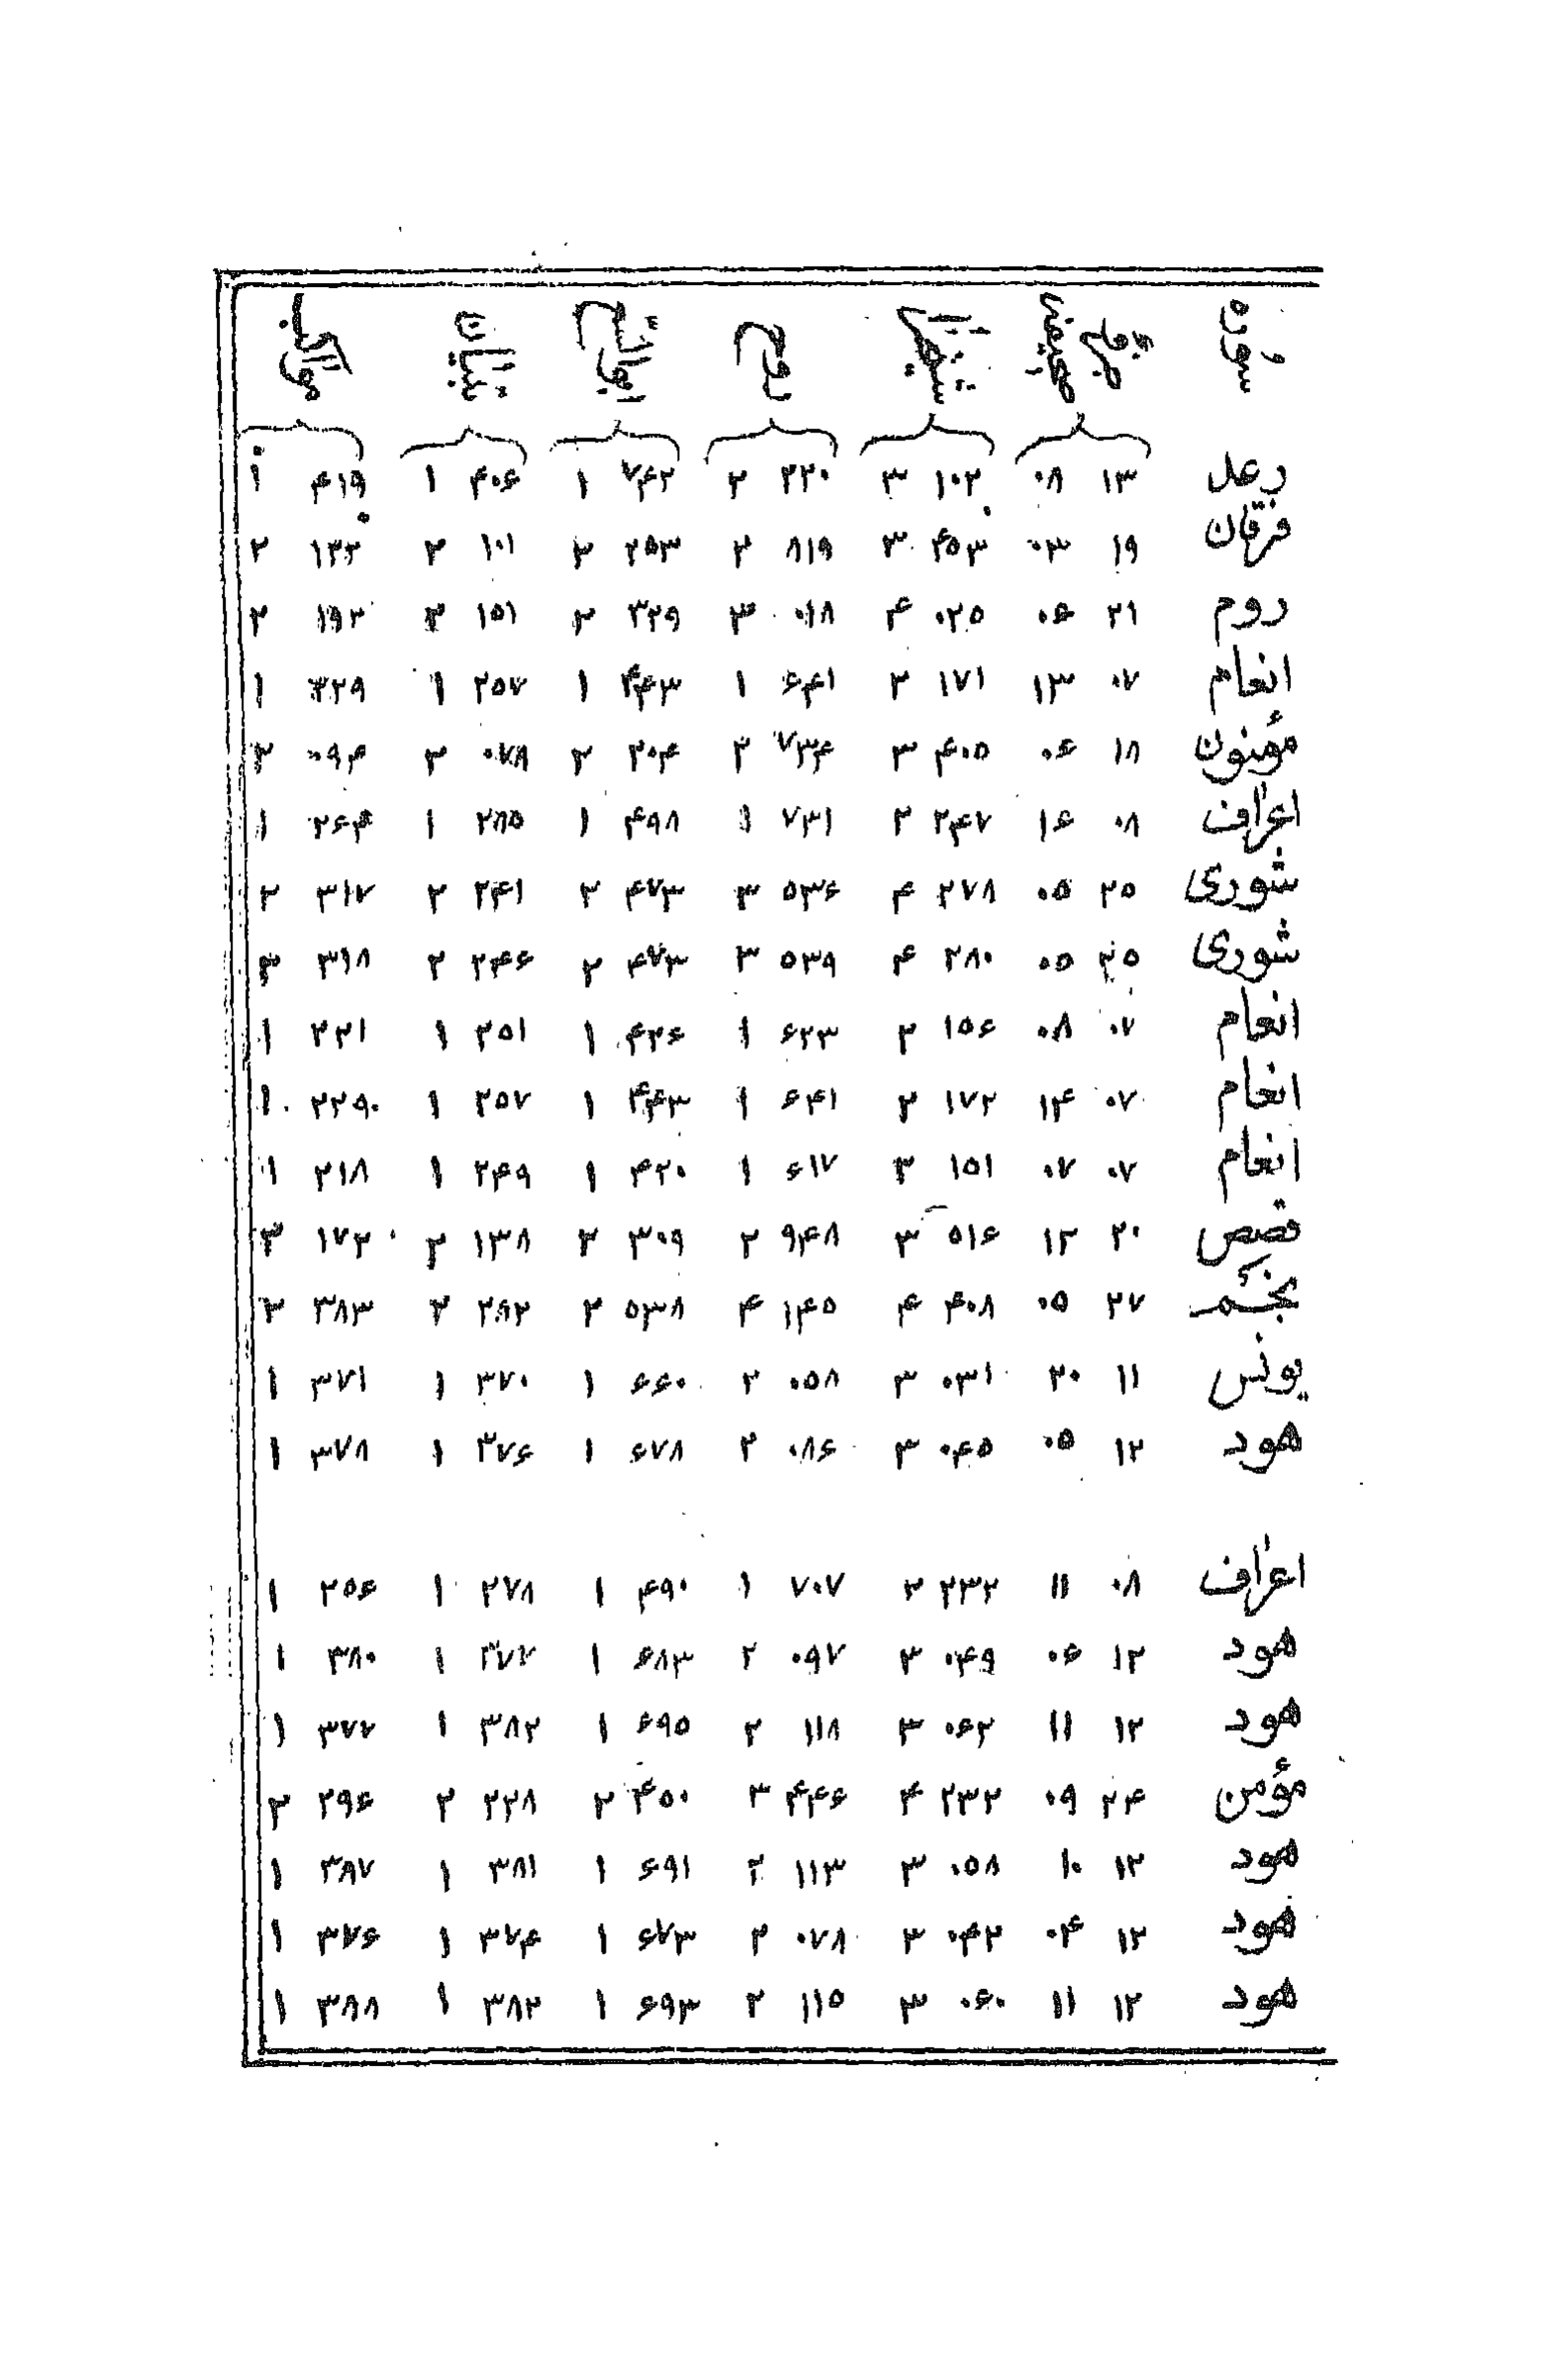 سوره جزء صفحه روح تبیان
رعد ۱۳ ۰۸ ۱۰۲ ۳ ۲۲۰ ۲ ۷۴۲ ۱ ۴۰۶ ۱ ۴۱۹ ۱
فرقان ۱۹ ۰۳ ۴۵۳ ۳ ۸۱۹ ۲ ۲۵۳ ۲ ۱۰۱ ۲ ۱۳۲ ۲
روم ۲۱ ۰۶ ۰۲۵ ۴ ۰۱۸ ۳ ۳۲۹ ۲ ۱۵۱ ۲ ۱۹۲ ۲
انعام ۰۷ ۱۳ ۱۷۱ ۲ ۶۴۱ ۱ ۴۴۳ ۱ ۲۵۷ ۱ ۲۲۹ ۱
مؤمنون ۱۸ ۰۶ ۴۰۵ ۳ ۷۳۴ ۲ ۲۰۴ ۲ ۰۷۸ ۲ ۰۹۴ ۲
اعراف ۰۸ ۱۶ ۲۴۷ ۲ ۷۳۱ ۱ ۴۹۸ ۱ ۲۸۵ ۱ ۲۶۴ ۱
شوری ۲۵ ۰۵ ۲۷۸ ۴ ۵۳۶ ۳ ۴۷۳ ۲ ۲۴۱ ۲ ۳۱۷ ۲
شوری ۲۵ ۰۵ ۲۸۰ ۴ ۵۳۹ ۳ ۴۷۳ ۲ ۲۴۶ ۲ ۳۱۸ ۲
انعام ۰۷ ۰۸ ۱۵۶ ۲ ۶۲۳ ۱ ۴۲۶ ۱ ۲۵۱ ۱ ۲۲۱ ۱
انعام ۰۷ ۱۴ ۱۷۲ ۲ ۶۴۱ ۱ ۴۴۳ ۱ ۲۵۷ ۱ ۲۲۹ ۱
انعام ۰۷ ۰۷ ۱۵۱ ۲ ۶۱۷ ۱ ۴۲۰ ۱ ۲۴۹ ۱ ۲۱۸ ۱
قصص ۲۰ ۱۲ ۵۱۶ ۳ ۹۴۸ ۲ ۳۰۹ ۲ ۱۳۸ ۲ ۱۷۲ ۲
نجم ۲۷ ۰۵ ۴۰۸ ۴ ۱۴۵ ۴ ۵۳۸ ۲ ۲۹۲ ۲ ۳۸۳ ۲
یونس ۱۱ ۲۰ ۰۳۱ ۳ ۰۵۸ ۲ ۶۶۰ ۱ ۳۷۰ ۱ ۳۷۱ ۱
هود ۱۲ ۰۵ ۰۴۵ ۳ ۰۸۶ ۲ ۶۷۸ ۱ ۳۷۶ ۱ ۳۷۸ ۱
اعراف ۰۸ ۱۱ ۲۳۲ ۲ ۷۰۷ ۱ ۴۹۰ ۱ ۲۷۸ ۱ ۲۵۶ ۱
هود ۱۲ ۰۶ ۰۴۹ ۳ ۰۹۷ ۲ ۶۸۳ ۱ ۳۷۷ ۱ ۳۸۰ ۱
هود ۱۲ ۱۱ ۰۶۲ ۳ ۱۱۸ ۲ ۶۹۵ ۱ ۳۸۲ ۱ ۳۷۷ ۱
مؤمن ۲۴ ۰۹ ۲۳۲ ۴ ۴۴۶ ۳ ۴۵۰ ۲ ۲۲۸ ۲ ۲۹۶ ۲
هود ۱۲ ۱۰ ۰۵۸ ۳ ۱۱۳ ۲ ۶۹۱ ۱ ۳۸۱ ۱ ۳۸۷ ۱
هود ۱۲ ۰۴ ۰۴۲ ۳ ۰۷۸ ۲ ۶۷۳ ۱ ۳۷۴ ۱ ۳۷۶ ۱
هود ۱۲ ۱۱ ۰۶۰ ۳ ۱۱۵ ۲ ۶۹۳ ۱ ۳۸۲ ۱ ۳۸۸ ۱